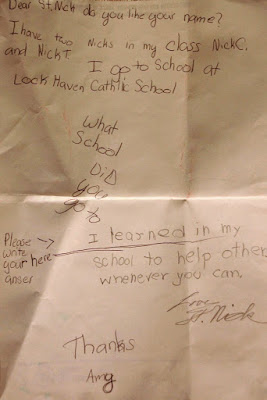 Dear St. Nick do you like your name?
I have two Nicks in my class Nick C.
and Nick T.
I go to School at
Lock Haven Cathlic School
What
School
DiD
you
go to
Please →
write
your here
anser
I learned in my
school to help other
whenever you can.
From
St. Nick
Thanks
Amy